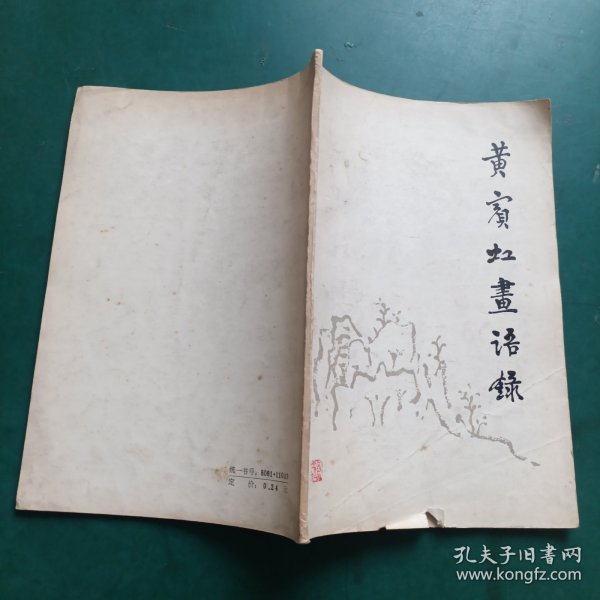 黄賓虹畫語錄
统一书号：8081·11017
定 价：0.24 元
孔夫子旧书网
www.kongfz.com